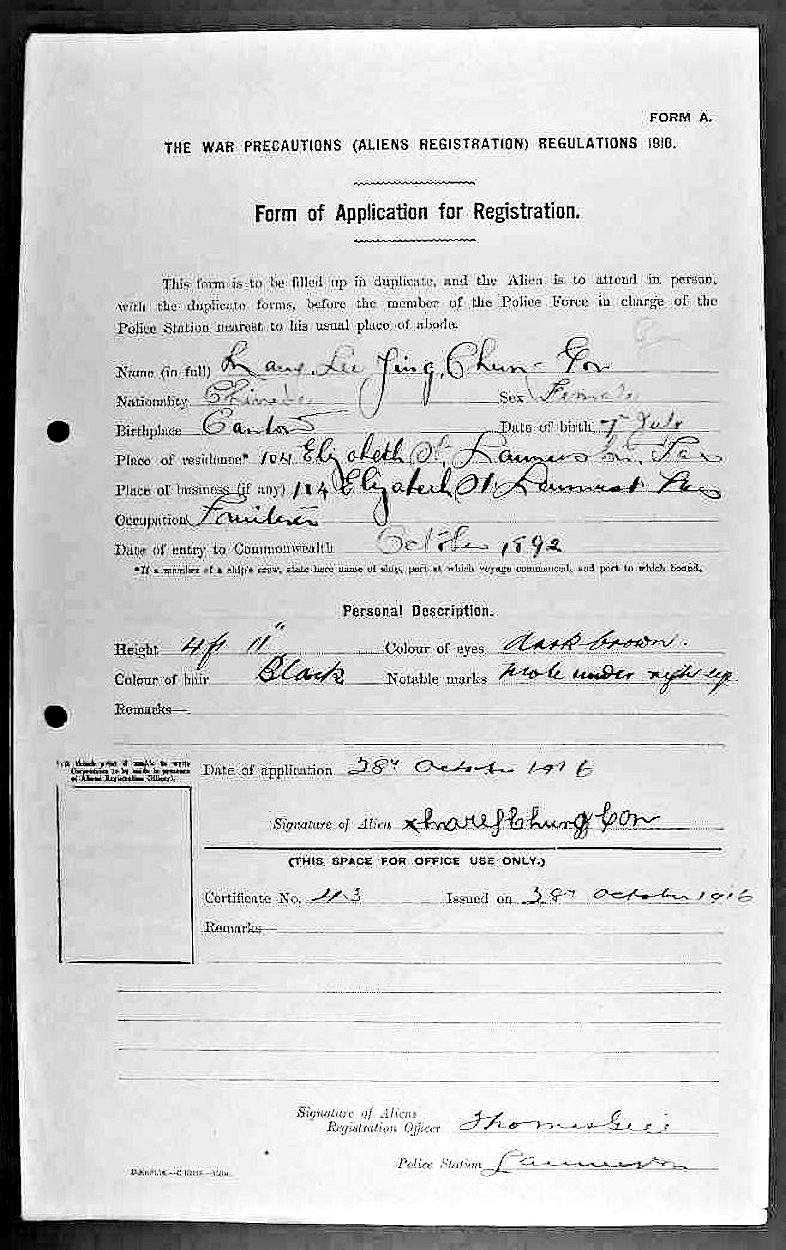 FORM A.
THE WAR PRECAUTIONS (ALIENS REGISTRATION) REGULATIONS 1916.
Form of Application for Registration.
This form is to be filled up in duplicate, and the Alien is to attend in person,
with the duplicate forms, before the member of the Police Force in charge of the
Police Station nearest to his usual place of abode.
Name (in full) Mary Lee Jing Chung Gon
Nationality Chinese Sex Female
Birthplace Canton Date of birth 7th July
Place of residence* 104 Elizabeth St Launceston Tas
Place of business (if any) 104 Elizabeth St Launcest Tas
Occupation
Date of entry to Commonwealth October 1892
*If a member of a ship's crew, state here name of ship, port at which voyage commenced, and port to which bound.
Personal Description.
Height 4ft 11" Colour of eyes dark brown.
Colour of hair Black Notable marks mole under right lip
Remarks—
Left thumb print if unable to write
of Aliens Registration Officer).
Date of application 28th October 1916
Signature of Alien Chung Gon
(THIS SPACE FOR OFFICE USE ONLY.)
Certificate No. 43 Issued on 28th October 1916
Remarks—
Signature of Aliens
Registration Officer Thomas
Police Station Launceston